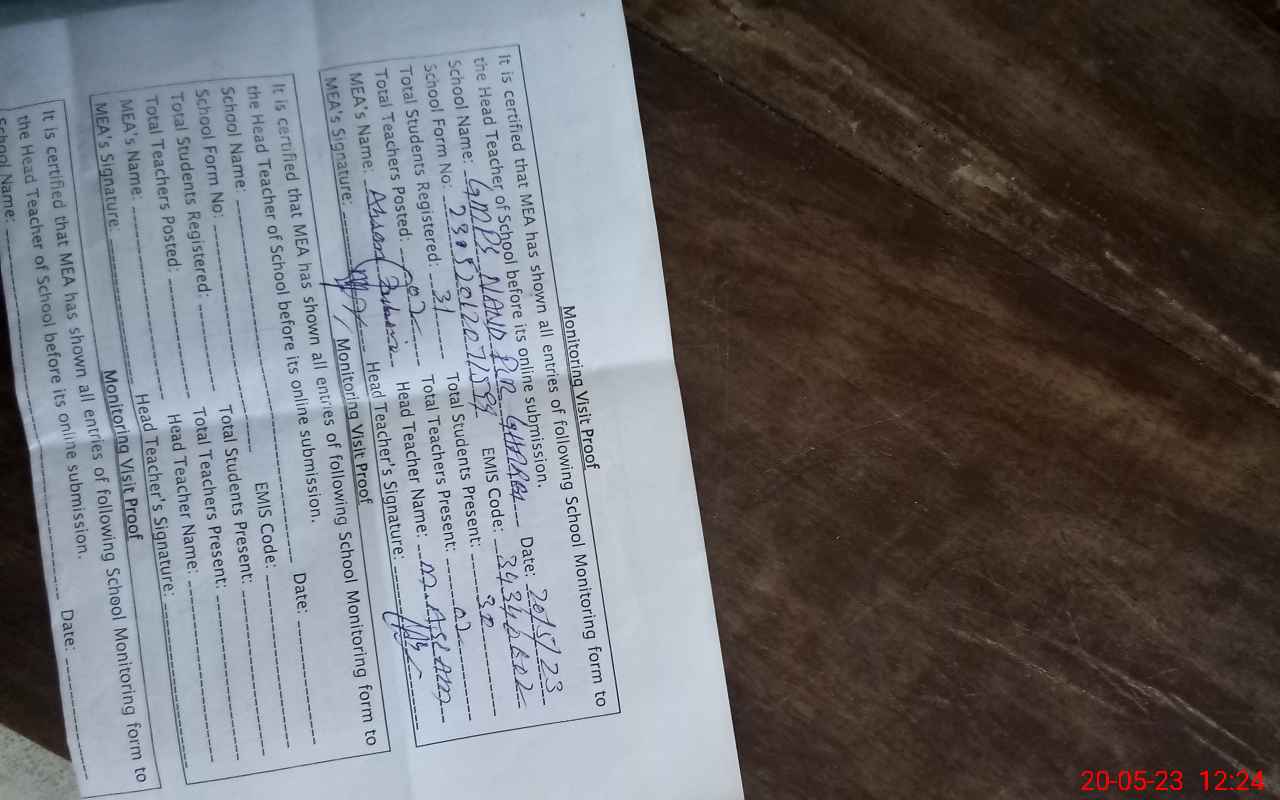 Monitoring Visit Proof
It is certified that MEA has shown all entries of following School Monitoring form to
the Head Teacher of School before its online submission.
School Name: GMPS NAND PUR Date: 20/5/23
School Form No: EMIS Code:
Total Students Registered: 31 Total Students Present: 30
Total Teachers Posted: 02 Total Teachers Present: 02
MEA's Name: Ahson Head Teacher Name: M. ASLAM
MEA's Signature: Head Teacher's Signature:
Monitoring Visit Proof
It is certified that MEA has shown all entries of following School Monitoring form to
the Head Teacher of School before its online submission.
School Name: Date:
School Form No: EMIS Code:
Total Students Registered: Total Students Present:
Total Teachers Posted: Total Teachers Present:
MEA's Name: Head Teacher Name:
MEA's Signature: Head Teacher's Signature:
Monitoring Visit Proof
It is certified that MEA has shown all entries of following School Monitoring form to
the Head Teacher of School before its online submission.
School Name: Date:
20-05-23 12:24